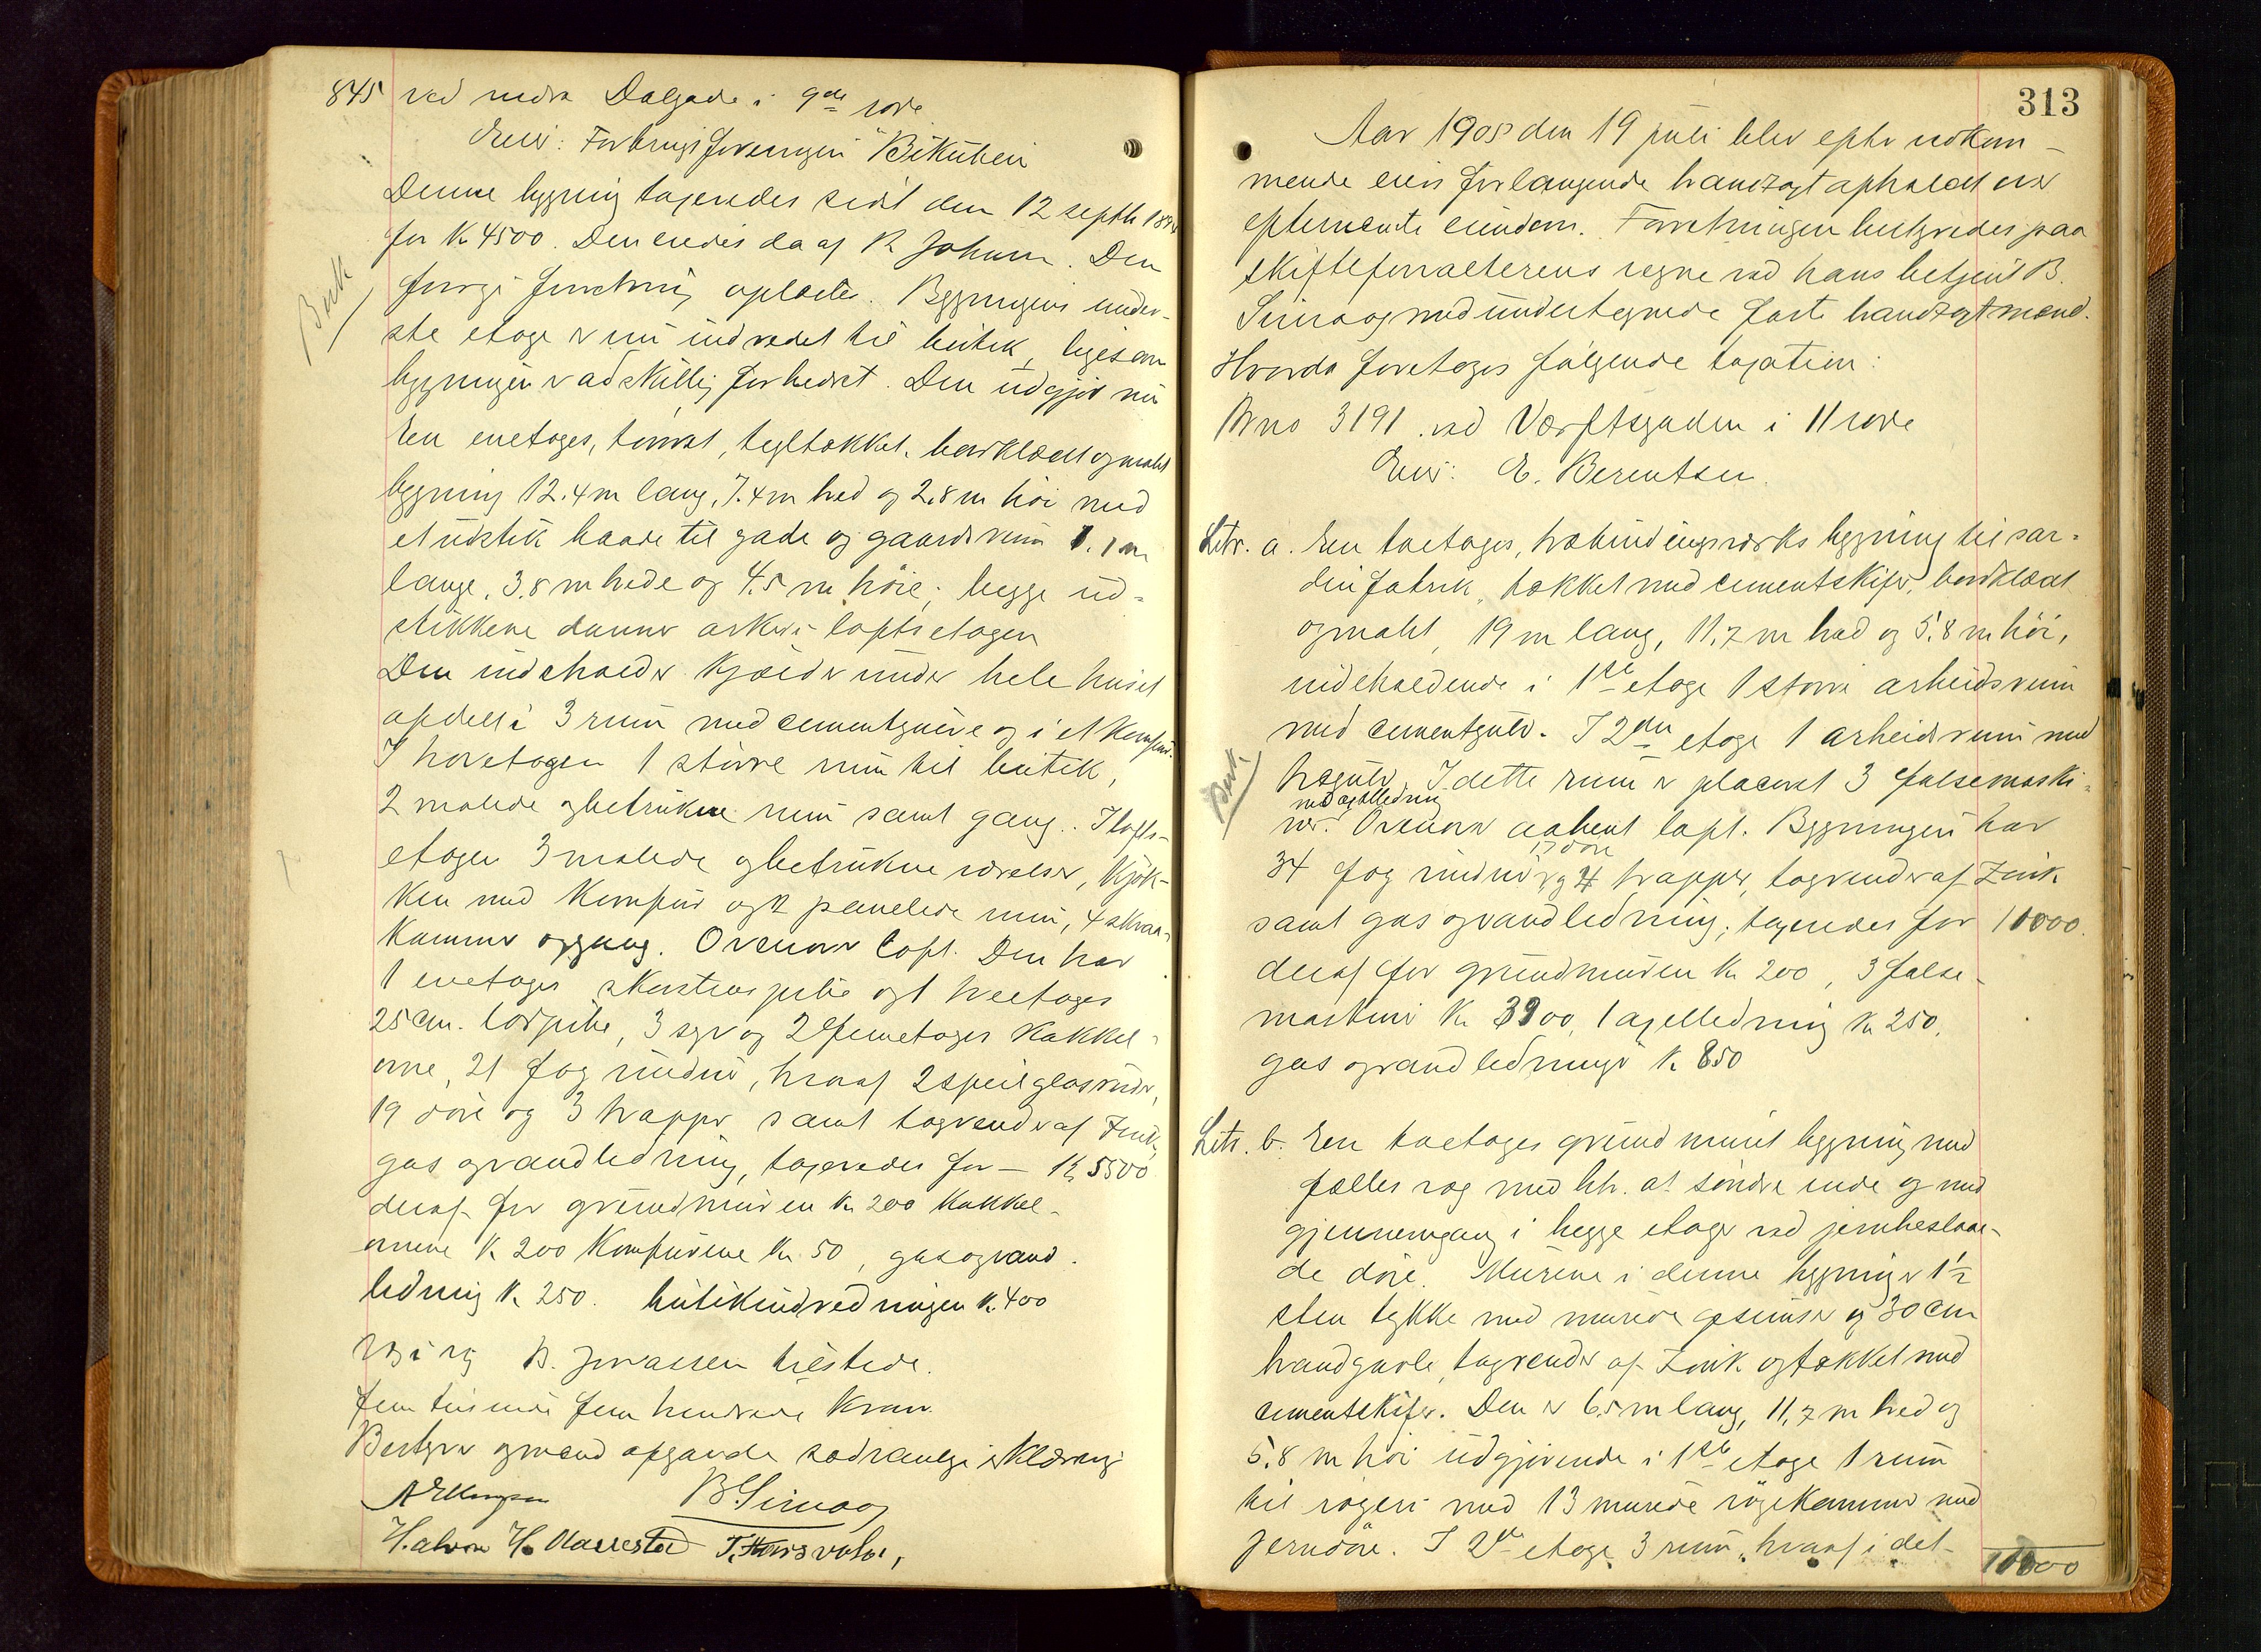 845 ved nedre Dalgade i 9de rode
Eier: Forbrugsforeningen "Bikuben
Denne bygning taxeredes sidst den 12 septbr
for Kr 4500. Den eiedes da af R Johnsen. Den
forrige forretning oplæstes. Bygningens under-
ste etage er nu indredet til butik, ligesom
bygningen er adskillig forbedret. Den udgjør nu
En enetages, tømret, tegltækket, bordklædt og malet
bygning 12.4 m lang, 7.4 m bred og 2.8 m høi med
et udstik baade til gade og gaardsrum 1.1 m
lange, 3.8 m brede og 4.5 m høie; begge ud-
stikkene danner arker i loftsetagen
Den indeholder kjælder under hele huset
afdelt i 3 rum med cementgulve og i et komfur.
I 1 større rum til butik,
2 malede og betrukne rum samt gang. I lofts-
etagen 3 malede og betrukne værelser, kjøk-
ken med komfur og 2 panelede rum, 4 skraa-
kammer og gang. Ovenover loft. Den har
1 enetages skorstenspibe og 1 toetages
25 cm. pibe, 3 og 2 femetages kakkel-
ovne, 21 fag vinduer, hvoraf 2 speilglasvinduer,
19 døre og 3 trapper samt tagrender af Zink,
gas og vandledning, taxeredes for — Kr 5500
deraf for grundmuren Kr 200 kakkel-
ovnene Kr 200 Komfurene Kr 50, gas og vand-
ledning Kr 250. butikindredningen Kr. 400
B. Jonassen tilstede.
fem tusinde fem hundrede kroner
Bestyrer og mænd afgav sædvanlig erklæring
B Simoog
H. Harrestad T. Thorsvolen,
Besk
313
Aar 1905 den 19 juli blev efter vedkom-
mende eiers forlangende branttaxt afholdt over
efternævnte eiendom. Forretningen bestyredes paa
skifteforvalterens vegne ved hans betjent B.
Simoog med undertegnede faste branttaxtmænd.
Hvorda foretoges følgende taxation:
Br no 3191. ved Værftsgaden i 11 rode
Eier: E. Berentsen.
Litr. a. En toetages, træbindingsverks bygning til sar-
dinfabrik, tækket med cementskifer, bordklædt
og malet, 19 m lang, 11,7 m bred og 5.8 m høi,
indeholdende i 1ste etage 1 større arbeidsrum
med cementgulv. I 2den etage 1 arbeidsrum med
trægulv. I dette rum er placeret 3 falsemaski-
med axelledning
ner. Ovenover aabent loft. Bygningen har
17 døre
34 fag vinduer, og 4 trapper, tagrender af Zink
samt gas og vandledning; taxeredes for 11000.
deraf for grundmuren Kr 200, 3 false-
maskiner Kr 3900, 1 axelledning Kr 250,
gas og vandledninger Kr 850
Besk
Litr. b. En toetages grundmuret bygning med
fælles væg med litr. a søndre ende og med
gjennemgang i begge etager ved jernbeslaae-
de døre. Murene i denne bygning er 1½
sten tykke med murede gesimser og 30 cm
brandgavle, tagrender af Zink og tækket med
cementskifer. Den er 6.5 m lang, 11,7 m bred og
5.8 m høi udgjørende i 1ste etage 1 rum
til røgeri med 13 murede røgekammer med
jerndøre. I 2den etage 3 rum, hvoraf i det
11000